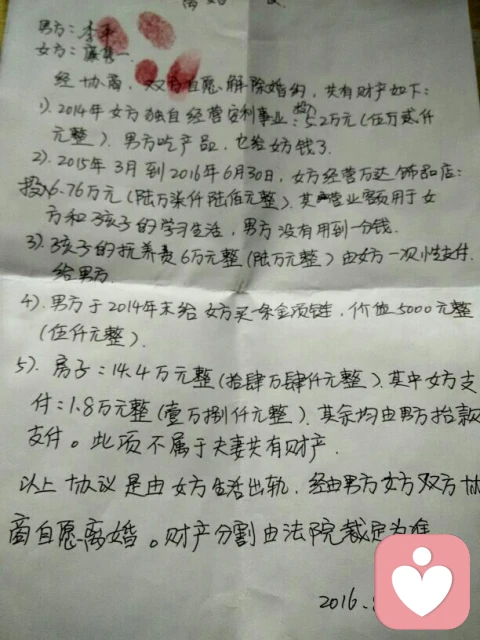 离婚 议
男方：李
女方：
经协商，双方自愿解除婚约，共有财产如下：
1). 2014年女方独自经营安利事业：投5.2万元（伍万贰仟
元整）. 男方吃产品，也给女方钱了.
2). 2015年3月到2016年6月30日，女方经营万达饰品店：
投6.76万元（陆万柒仟陆佰元整）. 其营业客额用于女
方和孩子的学习生活，男方没有用到一分钱.
3). 孩子的抚养责6万元整（陆万元整）由女方一次性支付
给男方.
4). 男方于2014年末给女方买一条金项链，价值5000元整
（伍仟元整）.
5). 房子：14.4万元整（拾肆万肆仟元整）. 其中女方支
付：1.8万元整（壹万捌仟元整）. 其余均由男方抬款
支付。此项不属于夫妻共有财产.
以上协议是由女方生活出轨，经由男方女方双方协
商自愿离婚。财产分割由法院裁定为准
2016.